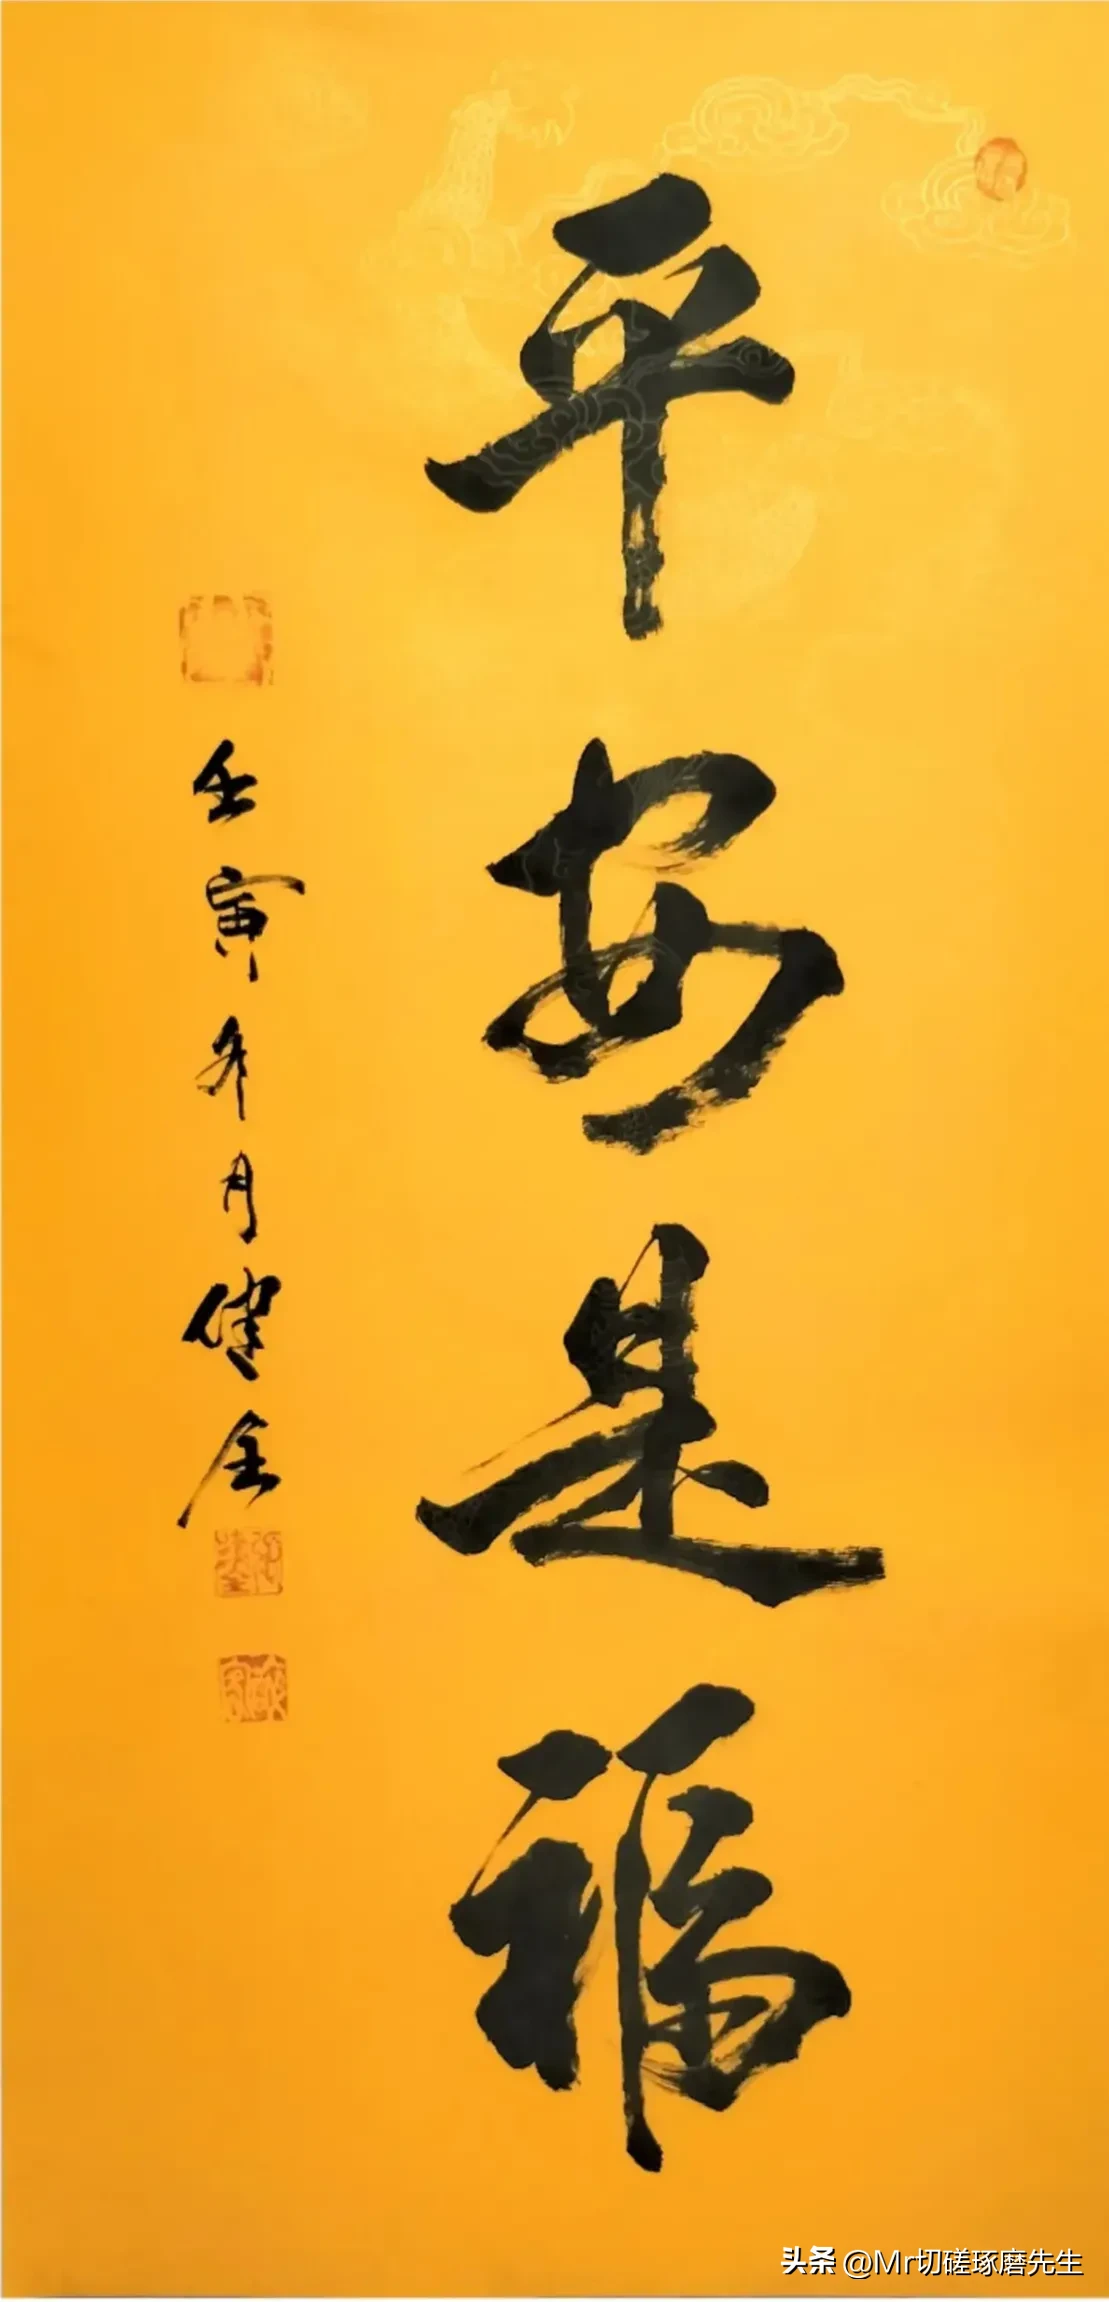 平安是福
壬寅年月健全
头条 @Mr切磋琢磨先生